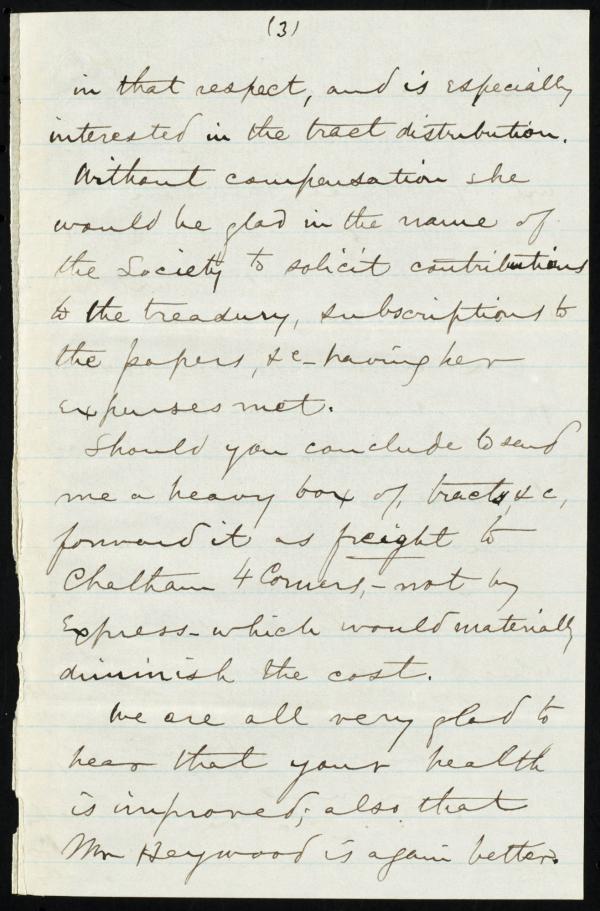 (3)
in that respect, and is especially
interested in the tract distribution.
Without compensation she
would be glad in the name of
the Society to solicit contributions
to the treasury, subscriptions to
the papers, &c - having her
expenses met.
Should you conclude to send
me a heavy box of, tracts, &c,
forward it as freight to
Chatham 4 Corners, - not by
Express - which would materially
diminish the cost.
We are all very glad to
hear that your health
is improved; also that
Mr Heywood is again better.